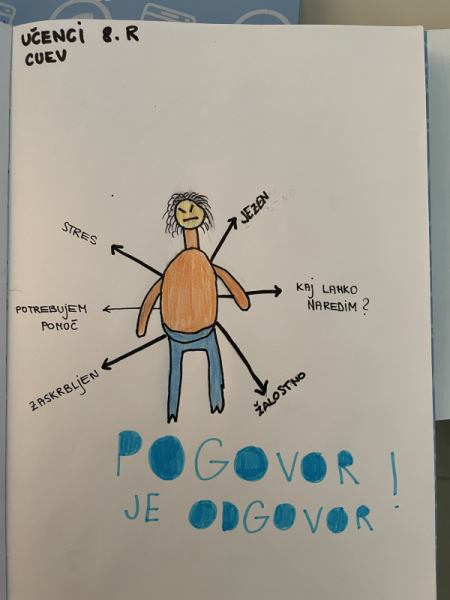 UČENCI 8. R
CUEV
JEZEN
STRES
KAJ LAHKO
NAREDIM?
POTREBUJEM
POMOČ
ZASKRBLJEN
ŽALOSTNO
POGOVOR!
JE ODGOVOR